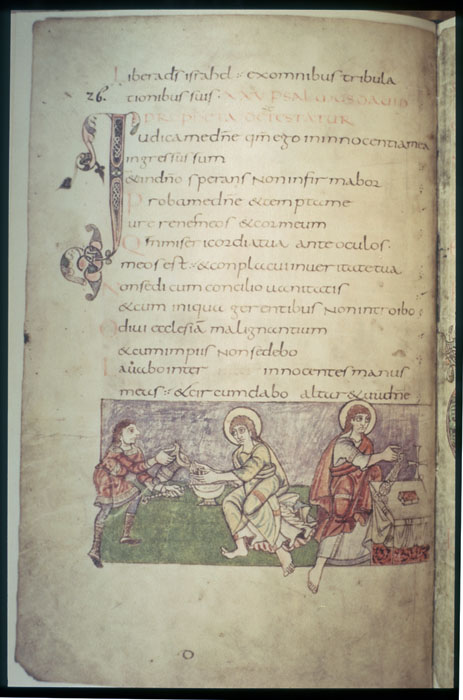 Liberads isrl̄ahel :: exomnibus tribula
26. tionibus suis. XXV PSALMUS DAVID
PROPHETA DETESTATUR
Iudicamedn̄e qm̄ ego in innocentiamea
ingressus sum
&indn̄o sperans non infirmabor
Probamedn̄e & temptame
ure renesmeos & cormeum
Qm̄ misericordiatua ante oculos.
meos est :: & conplacui inueritatetua
Nonsedi cum concilio uanitatis
&cum iniqua gerentibus nonintroibo;
Odiui ecclesiā malignantium
&cumimpiis nonsedebo
Lauabointer innocentes manus
meas :: & circumdabo altare tuūdn̄e